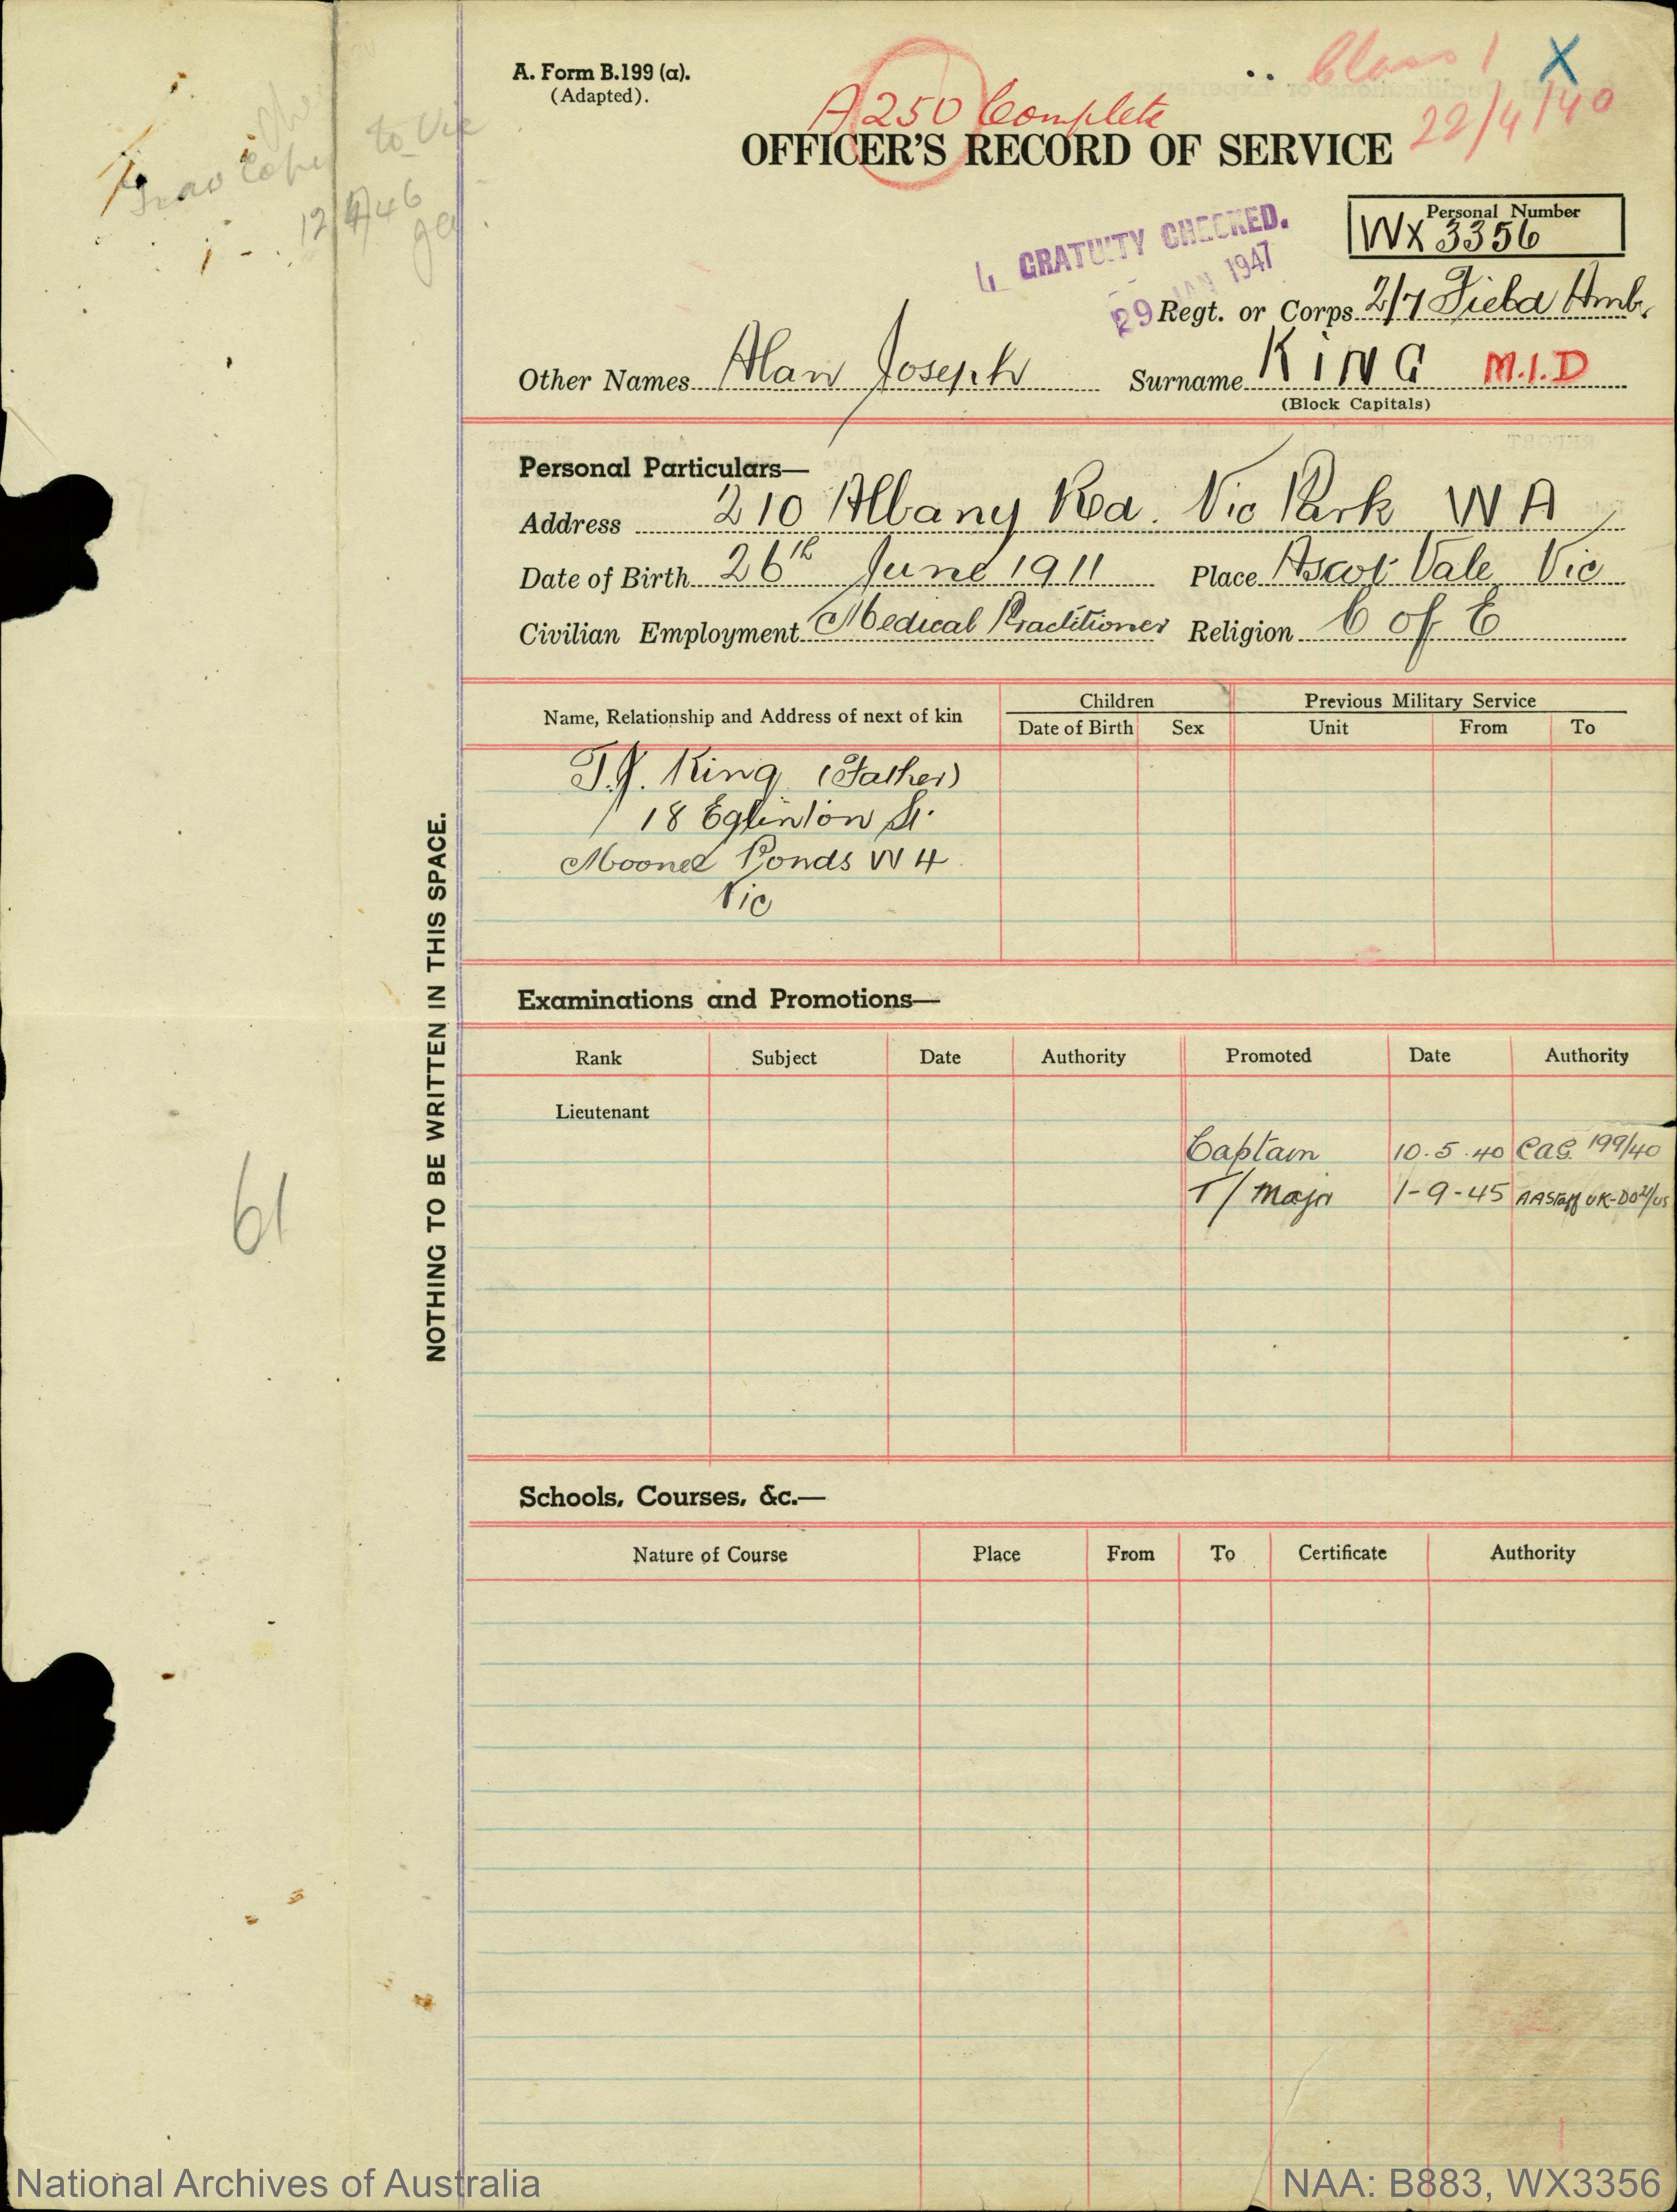 to Vic
12/4/46
A. Form B.199 (a).
(Adapted).
Class 1 X
A 250 Complete
22/4/40
OFFICER'S RECORD OF SERVICE
GRATUITY CHECKED.
29 JAN 1947
Personal Number
WX 3356
Regt. or Corps 2/7 Field Amb.
Other Names Alan Joseph Surname KING M.I.D
(Block Capitals)
Personal Particulars—
Address 210 Albany Rd. Vic Park WA
Date of Birth 26th June 1911 Place Ascot Vale Vic
Civilian Employment Medical Practitioner Religion C of E
Name, Relationship and Address of next of kin Children Previous Military Service
Date of Birth Sex Unit From To
T.J. King (Father)
18 Eglinton St.
Moonee Ponds W4
Vic
NOTHING TO BE WRITTEN IN THIS SPACE.
61
Examinations and Promotions—
Rank Subject Date Authority Promoted Date Authority
Lieutenant
Captain 10.5.40 CAG. 199/40
T/Major 1-9-45 AAStaff UK-DO
Schools, Courses, &c.—
Nature of Course Place From To Certificate Authority
National Archives of Australia NAA: B883, WX3356